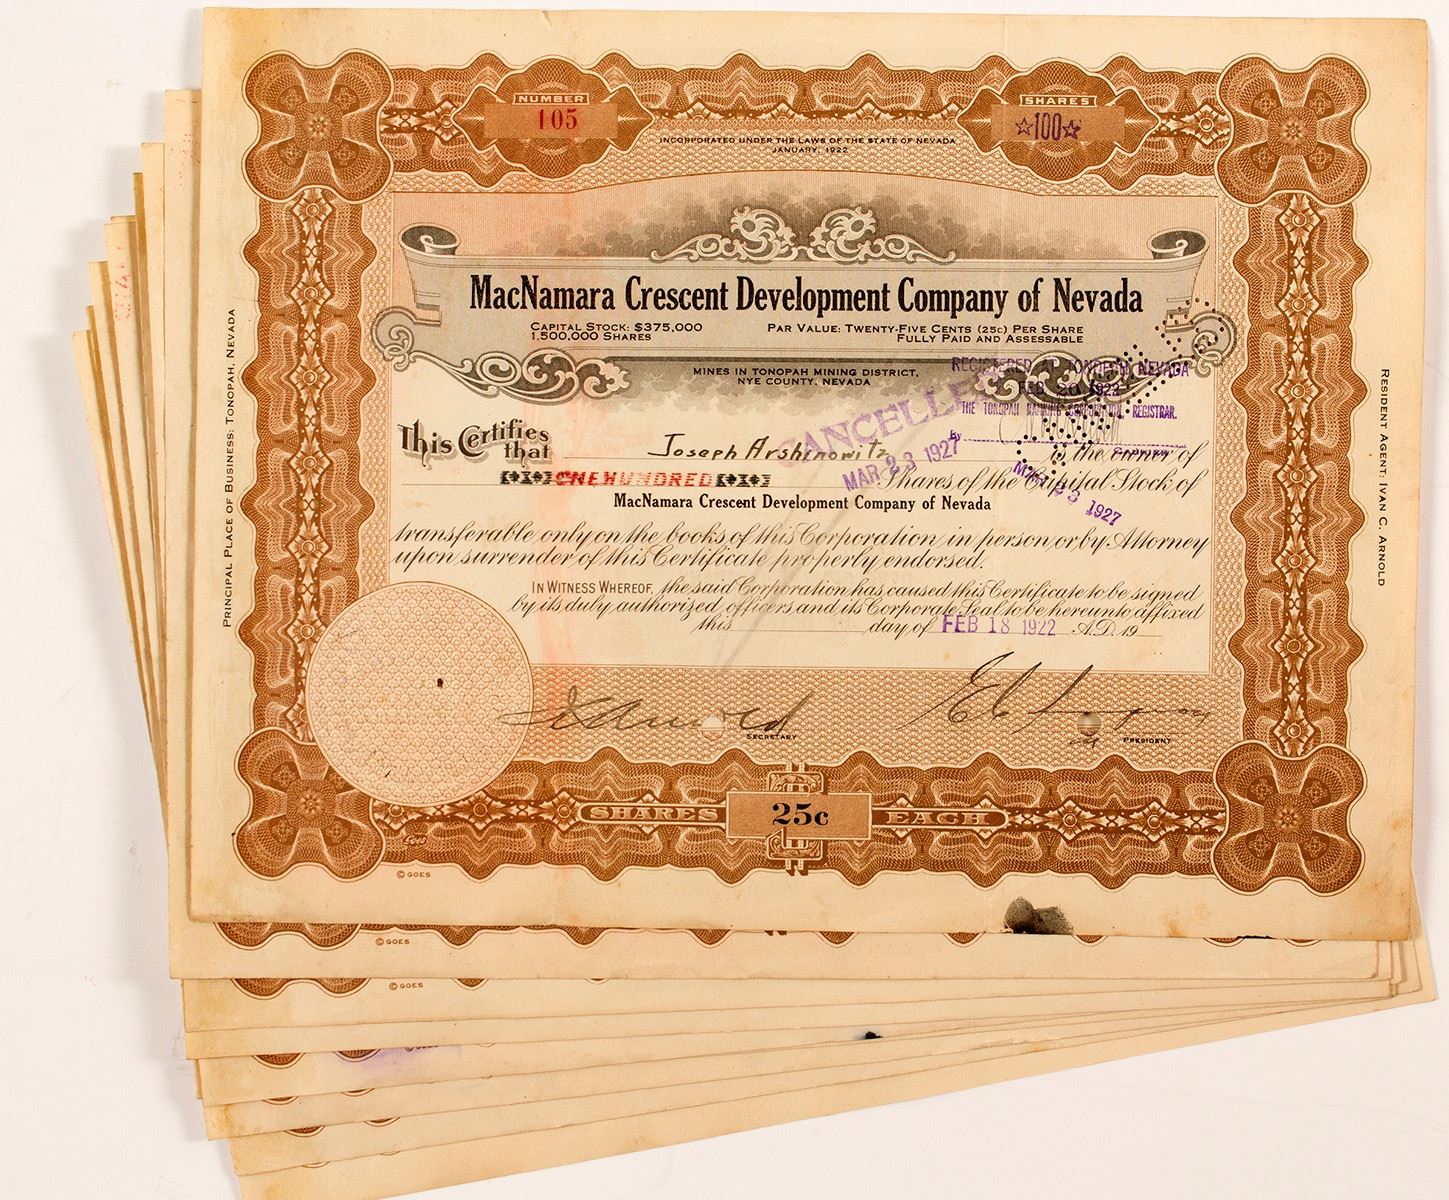 NUMBER
105
SHARES
☆100☆
INCORPORATED UNDER THE LAWS OF THE STATE OF NEVADA
JANUARY, 1922
MacNamara Crescent Development Company of Nevada
CAPITAL STOCK: $375,000
1,500,000 SHARES
PAR VALUE: TWENTY-FIVE CENTS (25c) PER SHARE
FULLY PAID AND ASSESSABLE
MINES IN TONOPAH MINING DISTRICT,
NYE COUNTY, NEVADA
REGISTERED AT TONOPAH, NEVADA
FEB 20 1922
THE TONOPAH BANKING CORPORATION, REGISTRAR.
By
CANCELLED
MAR 23 1927
MAR 23 1927
This Certifies
that
Joseph Arshinowitz
is the owner of
ONEHUNDRED
Shares of the Capital Stock of
MacNamara Crescent Development Company of Nevada
transferable only on the books of this Corporation in person or by Attorney
upon surrender of this Certificate properly endorsed.
IN WITNESS WHEREOF, the said Corporation has caused this Certificate to be signed
by its duly authorized officers and its Corporate Seal to be hereunto affixed
this day of FEB 18 1922 A.D. 19
SECRETARY
PRESIDENT
SHARES 25c EACH
GOES
© GOES
PRINCIPAL PLACE OF BUSINESS: TONOPAH, NEVADA
RESIDENT AGENT: IVAN C. ARNOLD
© GOES
© GOES